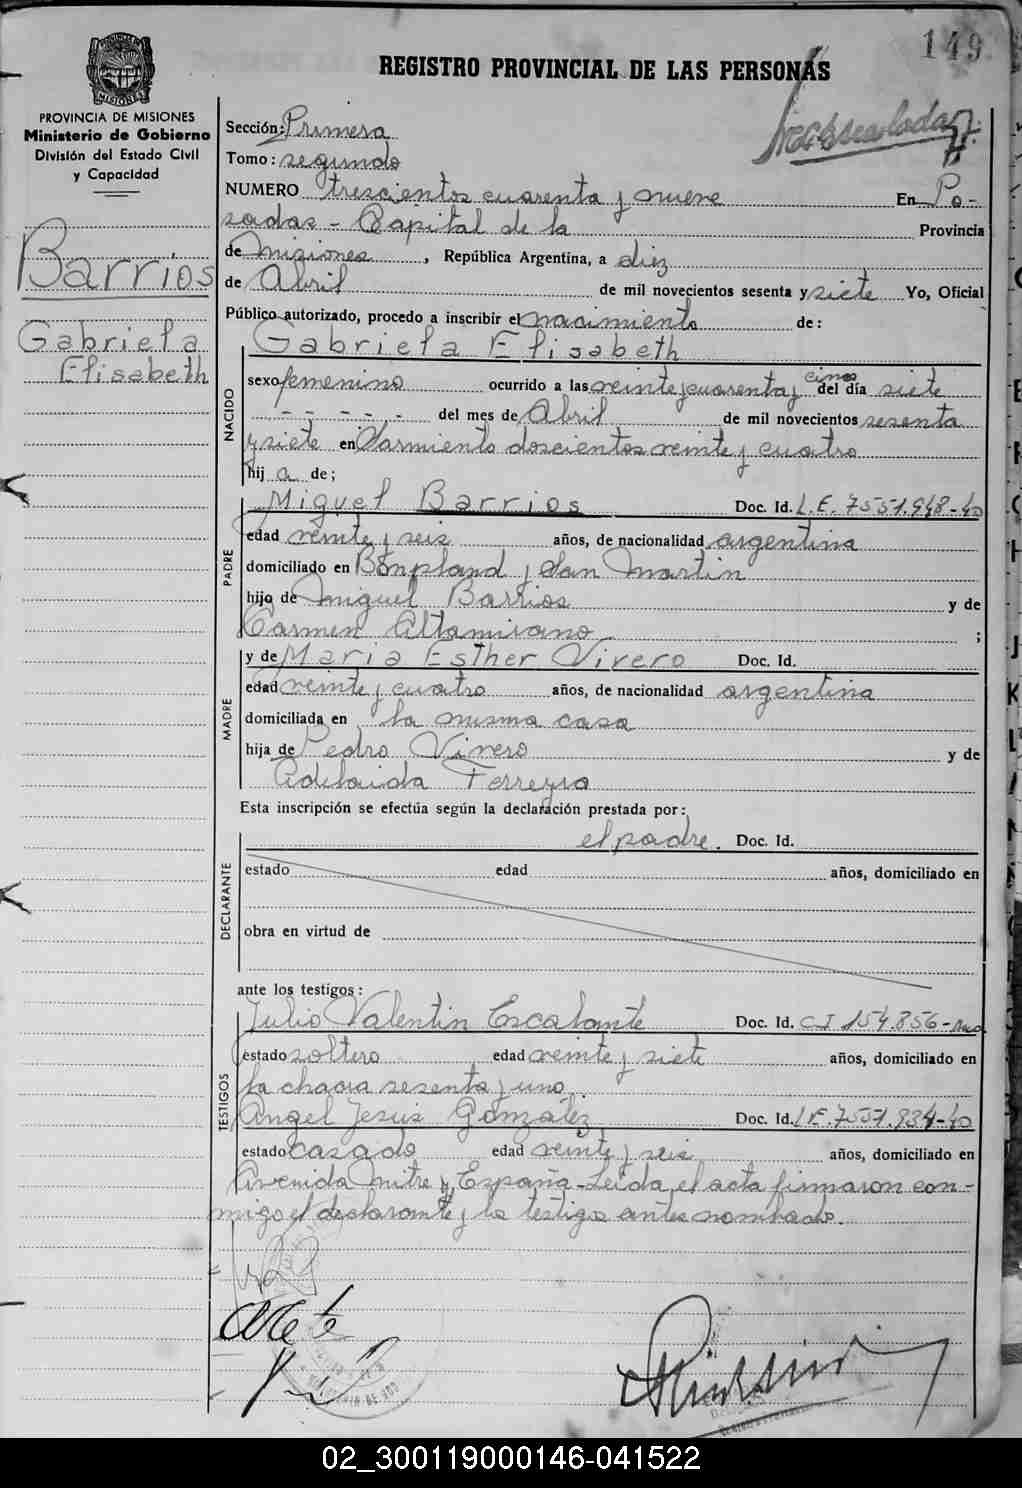 149
REGISTRO PROVINCIAL DE LAS PERSONAS
PROVINCIA DE MISIONES
Ministerio de Gobierno
División del Estado Civil
y Capacidad
Barrios
Gabriela
Elisabeth
Sección: Primera
Tomo: segundo
NUMERO trescientos cuarenta y nueve En Po-
sadas - Capital de la Provincia
de Misiones, República Argentina, a diez
de Abril de mil novecientos sesenta y siete Yo, Oficial
Público autorizado, procedo a inscribir el nacimiento de:
Gabriela Elisabeth
NACIDO
sexo femenino ocurrido a las veinte y cuarenta y cinco del día siete
- - - - - del mes de Abril de mil novecientos sesenta
y siete en Sarmiento doscientos veinte y cuatro
hija de;
Miguel Barrios Doc. Id. L.E. 7551.948-40
PADRE
edad veinte y seis años, de nacionalidad argentina
domiciliado en Bonpland y San Martin
hijo de Miguel Barrios y de
Carmen Altamirano ;
y de Maria Esther Vivero Doc. Id.
MADRE
edad veinte y cuatro años, de nacionalidad argentina
domiciliada en la misma casa
hija de Pedro Vivero y de
Adelaida Ferreyra
Esta inscripción se efectúa según la declaración prestada por:
el padre. Doc. Id.
DECLARANTE
estado edad años, domiciliado en
obra en virtud de
ante los testigos:
Julio Valentin Escalante Doc. Id. CI 154.856-
TESTIGOS
estado soltero edad veinte y siete años, domiciliado en
la chacra sesenta y uno
Angel Jesus Gonzalez Doc. Id. L.E. 7551.934-40
estado casado edad veinte y seis años, domiciliado en
Avenida Mitre y España - Leida el acta firmaron con-
migo el declarante y los testigos antes nombrados.
02_300119000146-041522